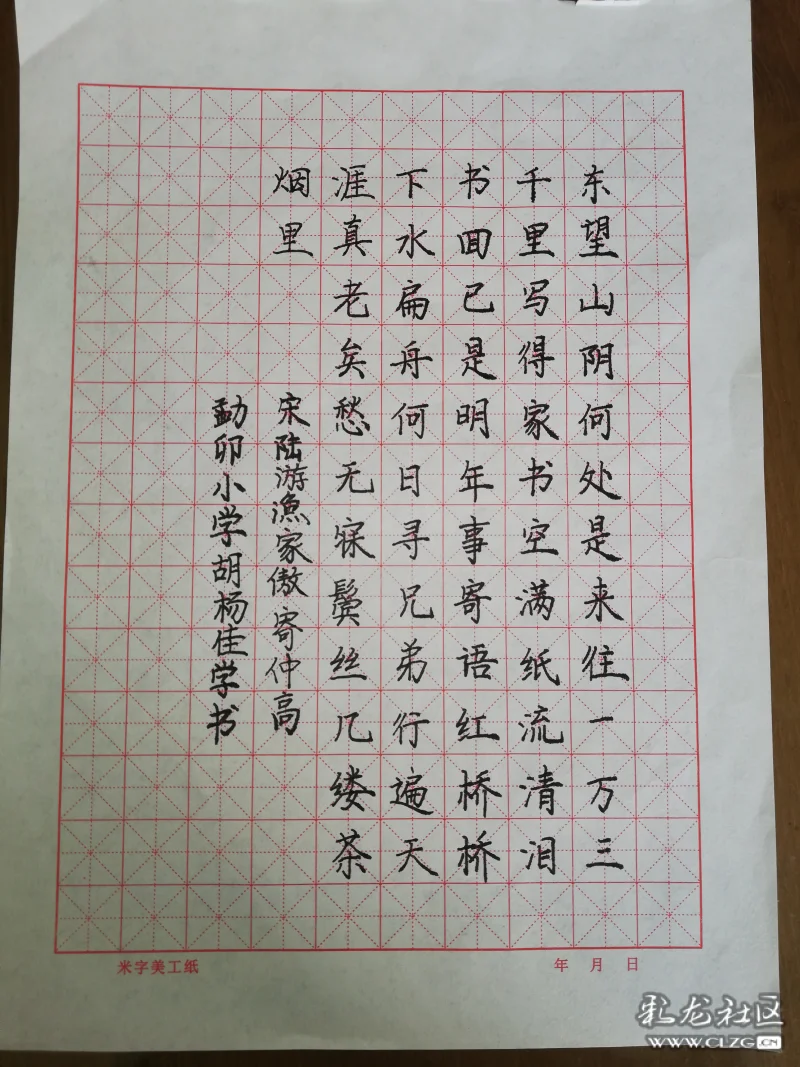 东望山阴何处是来往一万三
千里写得家书空满纸流清泪
书回已是明年事寄语红桥桥
下水扁舟何日寻兄弟行遍天
涯真老矣愁无寐鬓丝几缕茶
烟里
宋陆游渔家傲寄仲高
勐卯小学胡杨佳学书
米字美工纸
年 月 日
彩龙社区
WWW.CLZG.CN